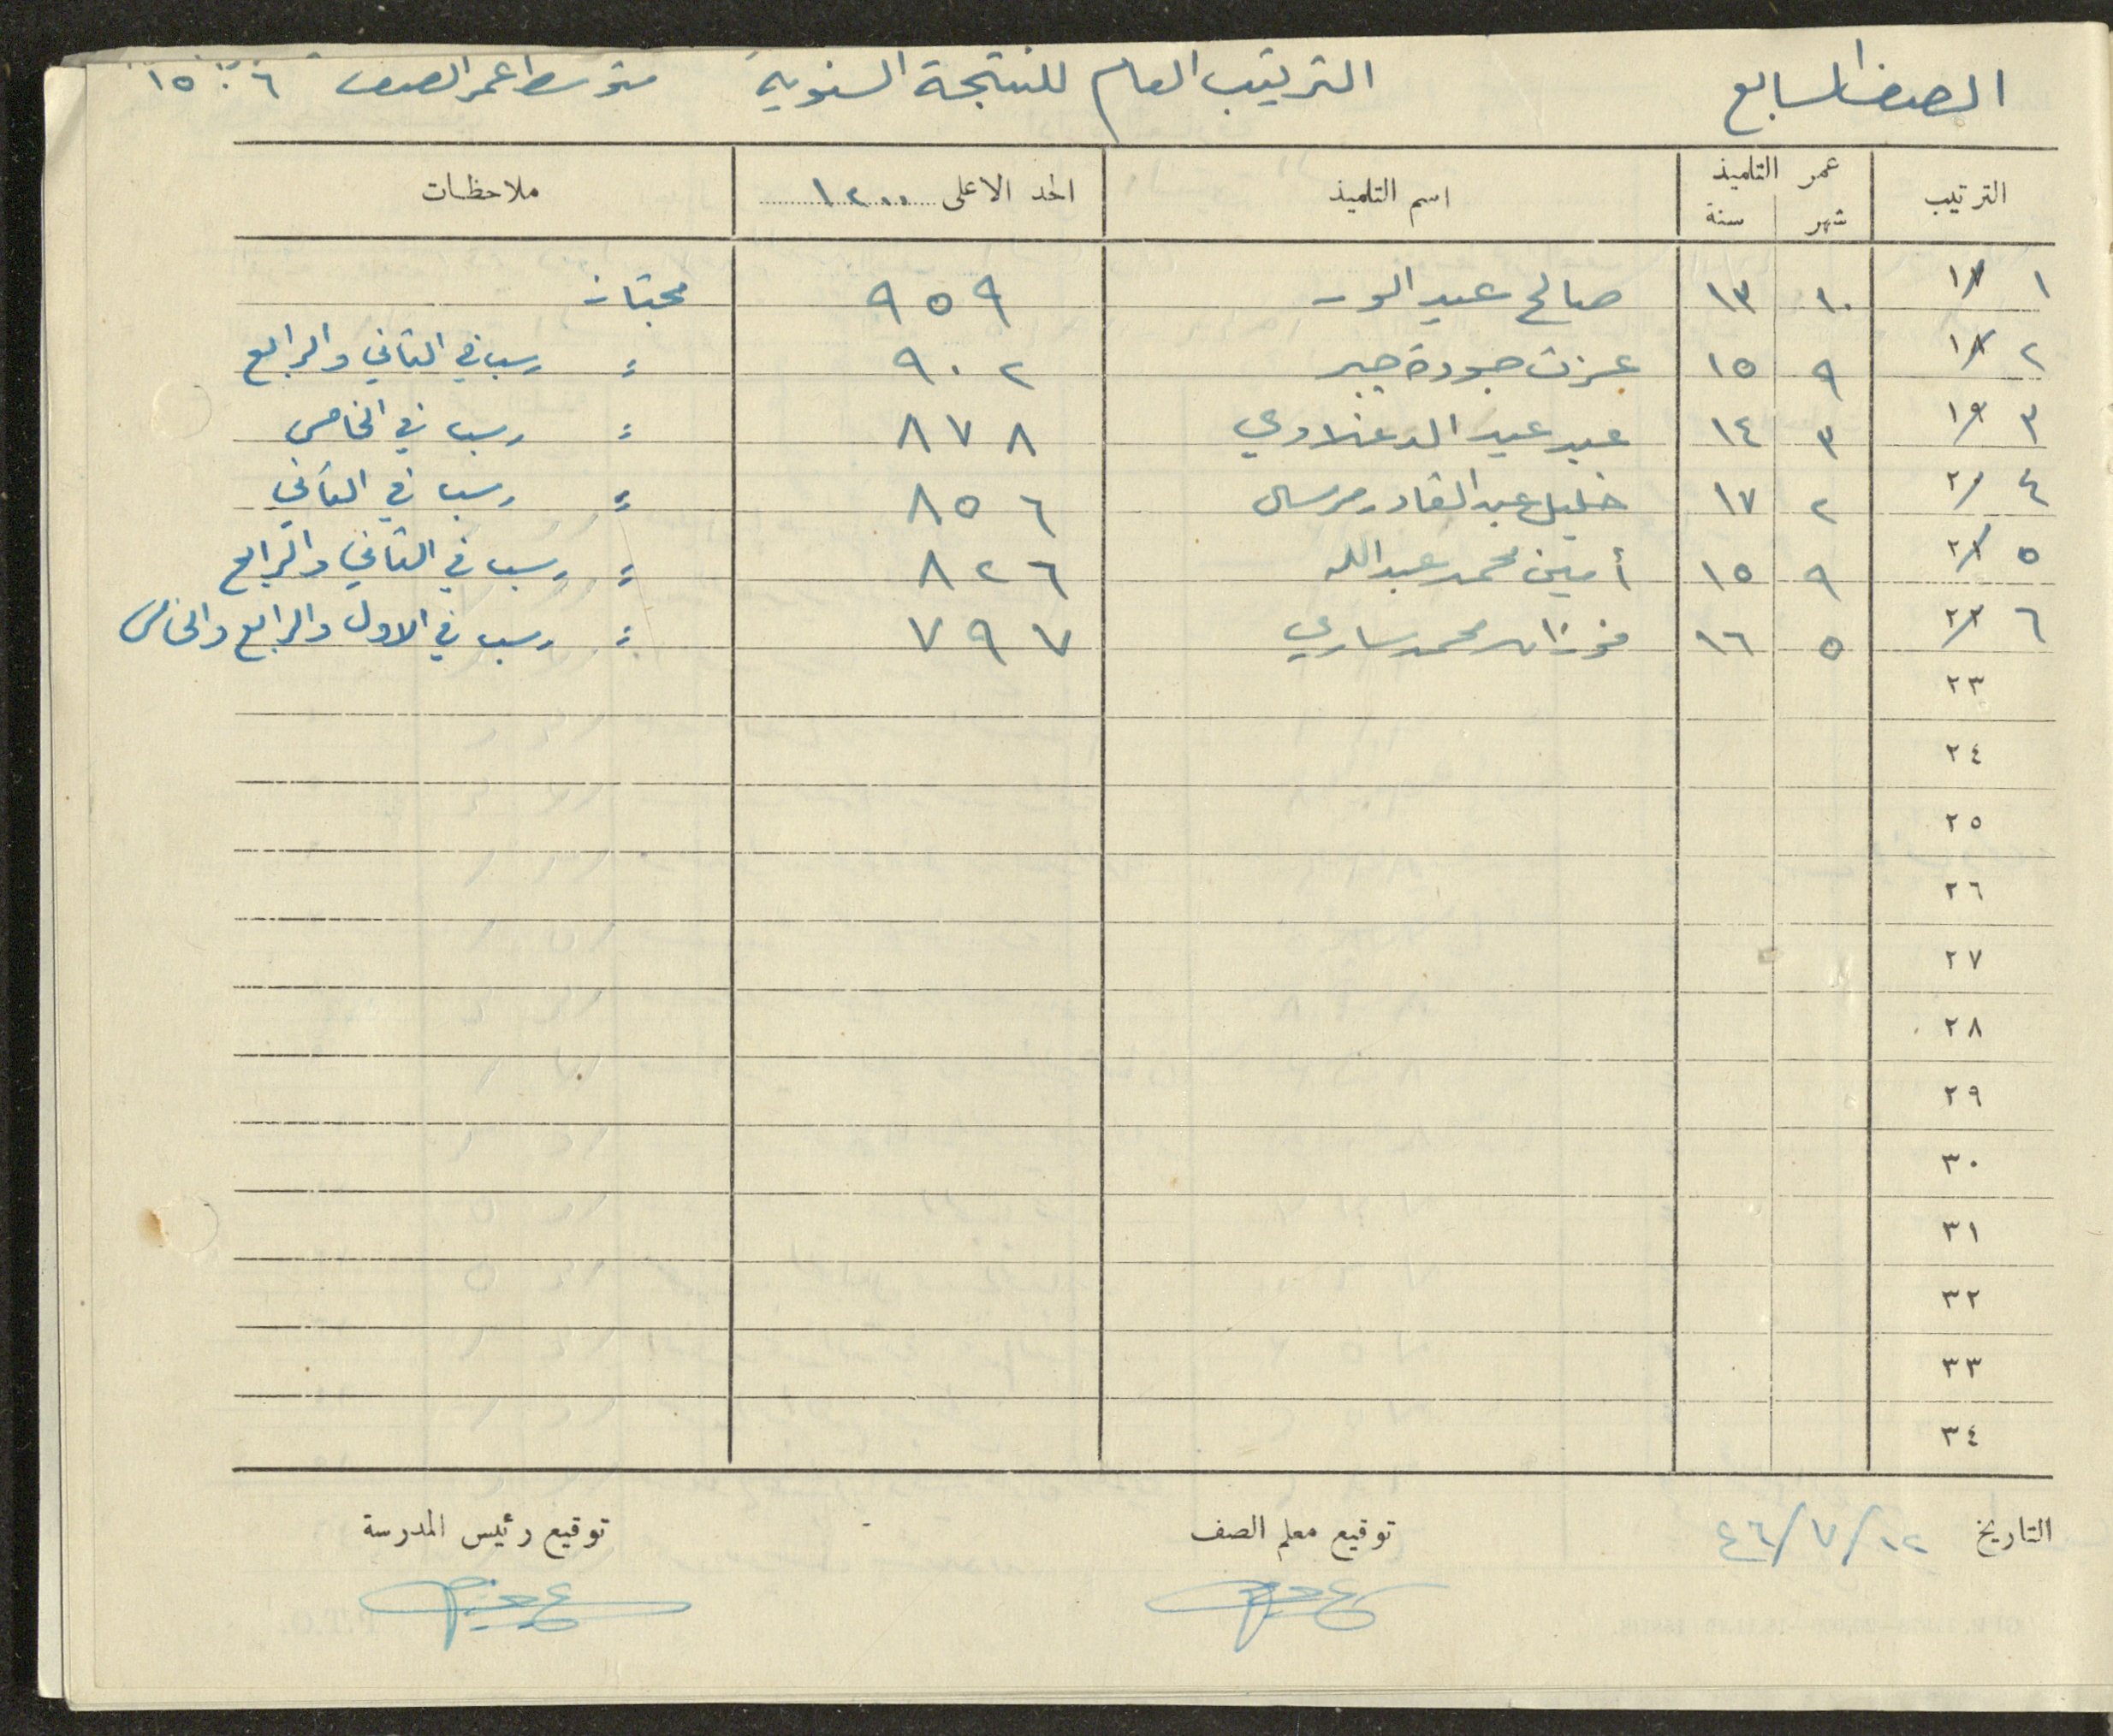 الصف السابع الترتيب العام للنتيجة السنوية متوسط عمر الصف ٦ ١٥
الترتيب عمر التلميذ شهر سنة اسم التلميذ الحد الاعلى ١٢٠٠ ملاحظات
١ ١٠ ١٣ صالح عيد ٩٥٩ مجتاز
٢ ٩ ١٥ عزت جودة جبر ٩٠٢ " رسب في الثاني والرابع
٣ ٣ ١٤ عبد عيد ٨٧٨ " رسب في الخامس
٤ ٢ ١٧ خليل عبد القادر مرسال ٨٥٦ " رسب في الثاني
٥ ٩ ١٥ أمين محمد عبدالله ٨٢٦ " رسب في الثاني والرابع
٦ ٥ ١٦ محمد ساري ٧٩٧ " رسب في الاول والرابع والخامس
٢٣
٢٤
٢٥
٢٦
٢٧
٢٨
٢٩
٣٠
٣١
٣٢
٣٣
٣٤
التاريخ ١٢/٧/٤٦ توقيع معلم الصف توقيع رئيس المدرسة